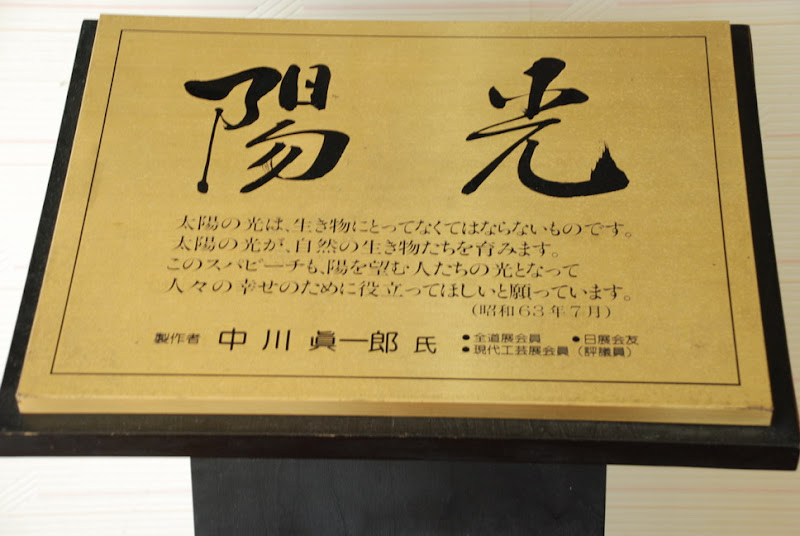 陽光
太陽の光は、生き物にとってなくてはならないものです。
太陽の光が、自然の生き物たちを育みます。
このスパビーチも、陽を望む人たちの光となって
人々の幸せのために役立ってほしいと願っています。
(昭和63年7月)
製作者 中川眞一郎氏 ●全道展会員 ●日展会友
●現代工芸展会員(評議員)